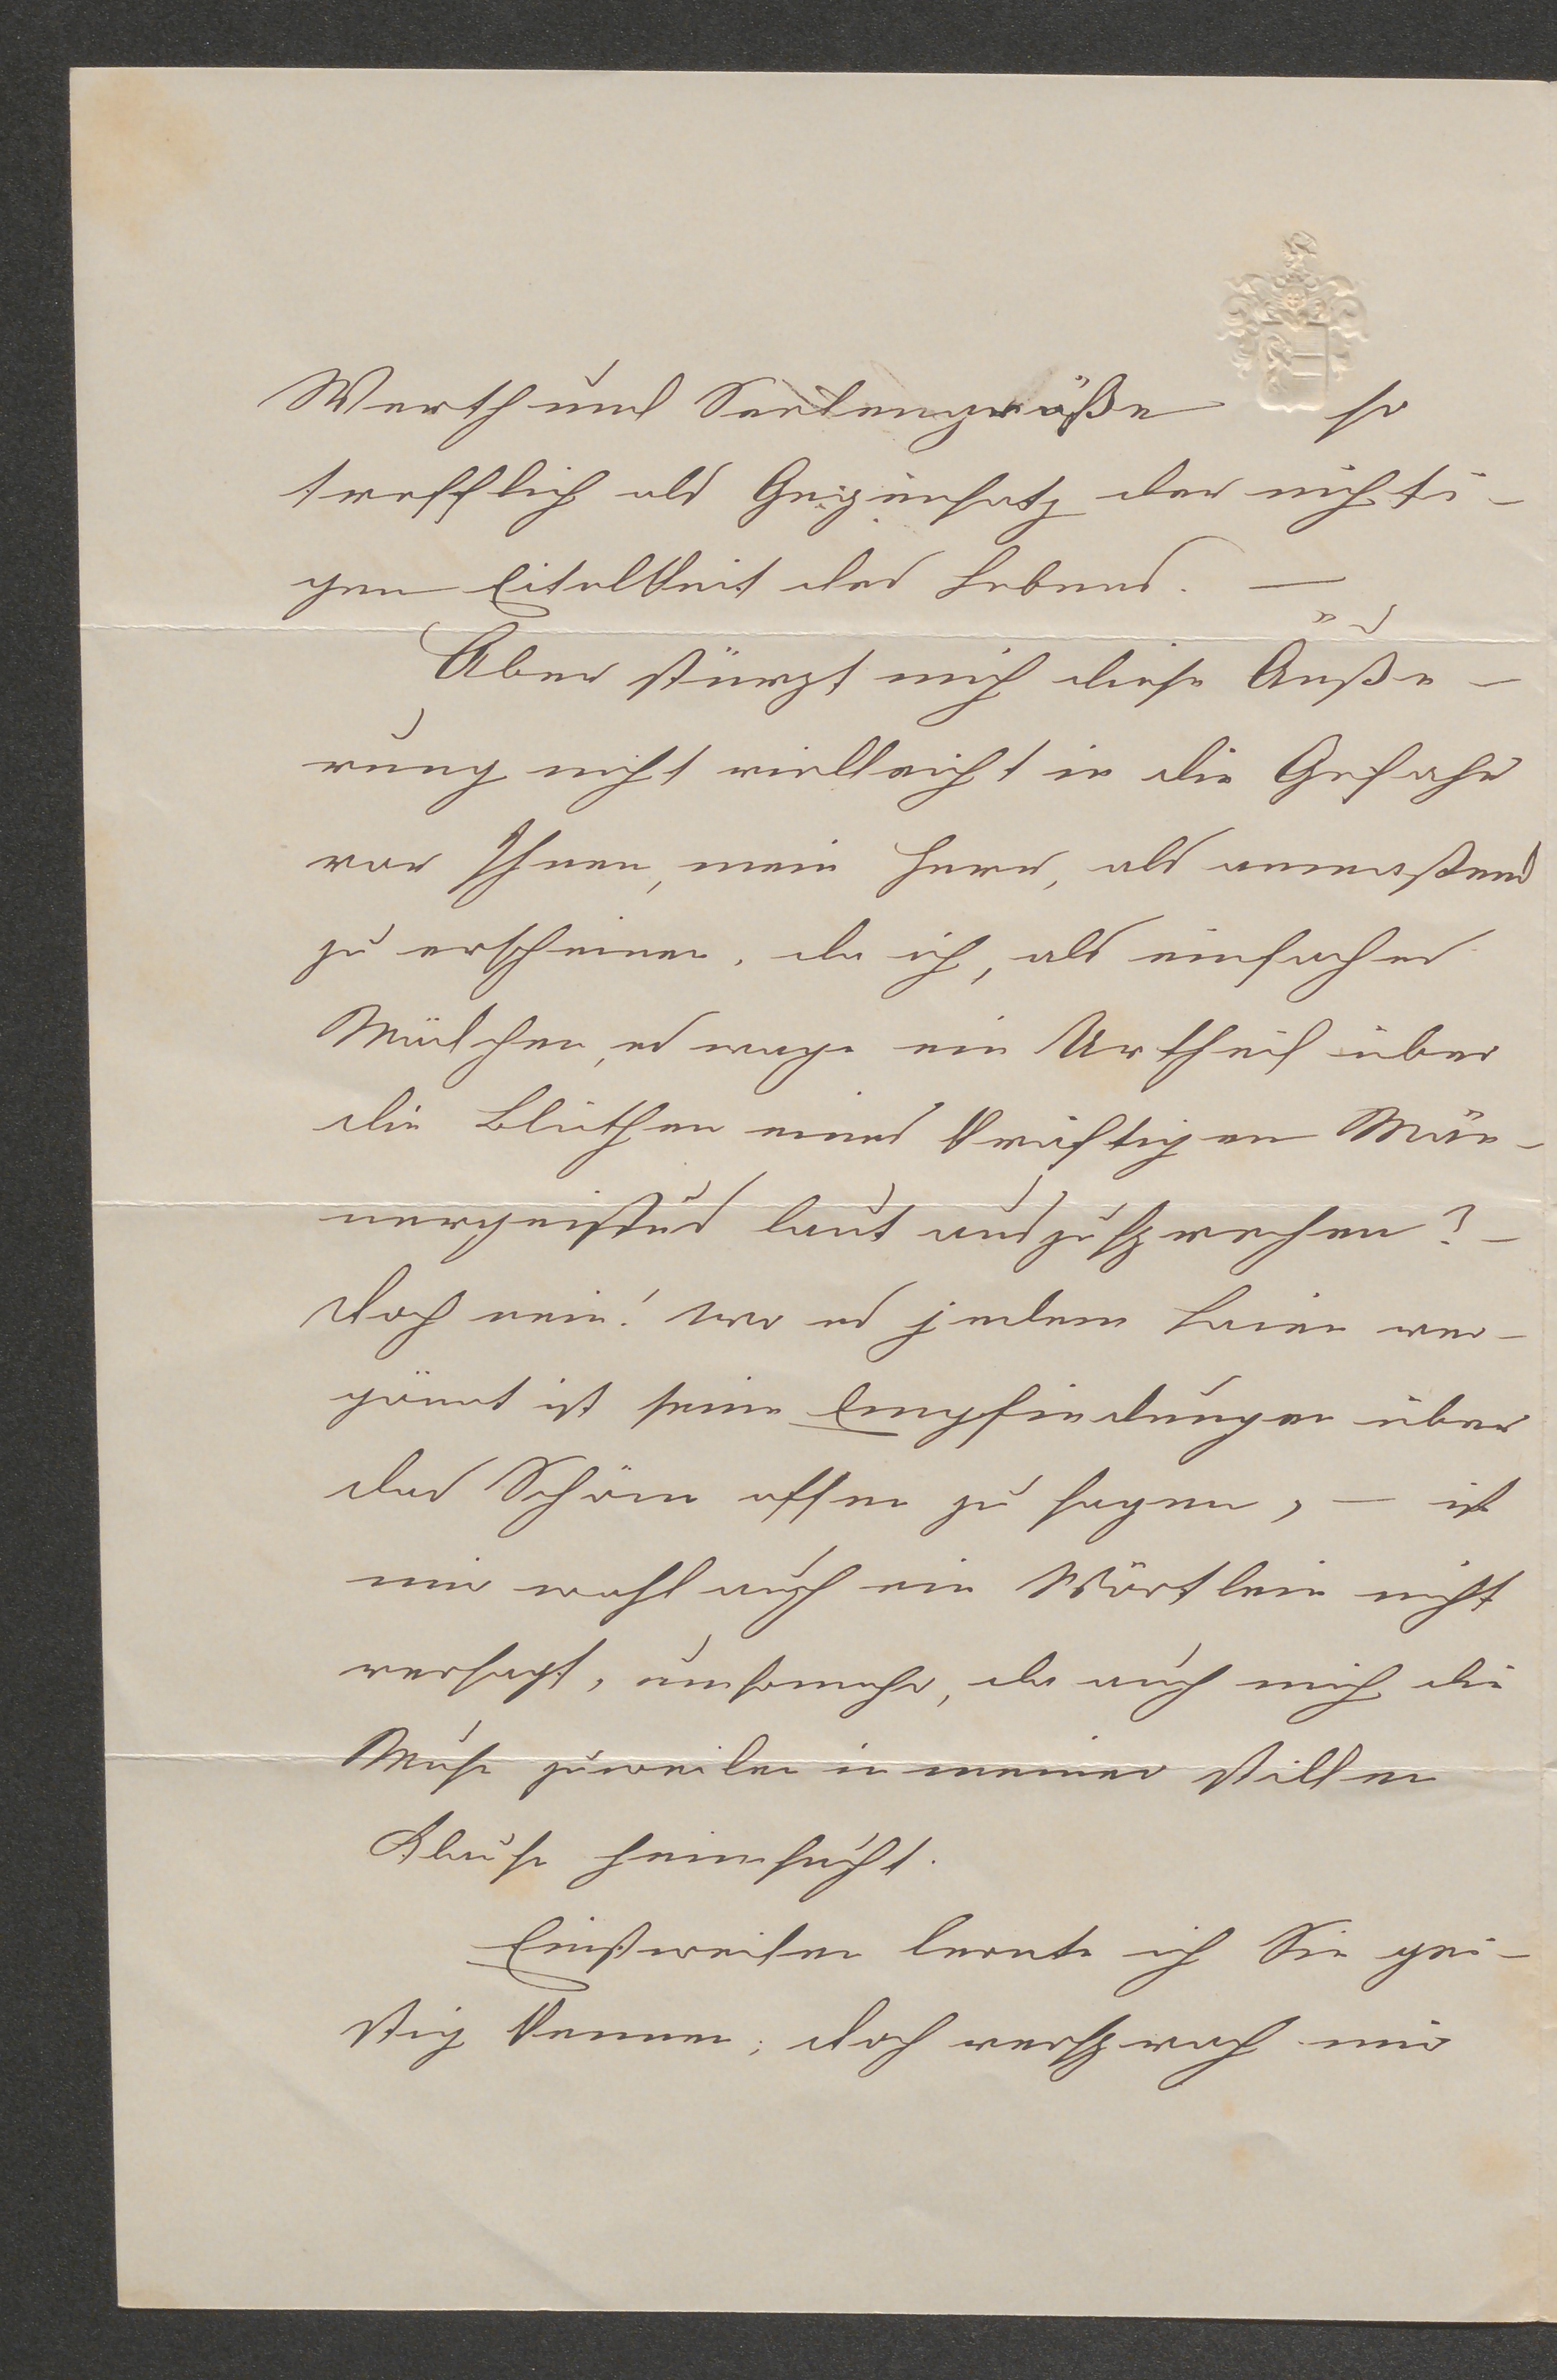 Werth und Seelengröße so
trefflich als Gegensatz der nichti-
gen Eitelkeit des Lebens. —
Aber stürzt mich diese Äuße-
rung nicht vielleicht in die Gefahr
vor Ihnen, mein Herr, als anmaßend
zu erscheinen, da ich, als einfaches
Mädchen, es wage ein Urtheil über
die Blüthen eines kräftigen Män-
nergeistes laut auszusprechen? —
doch nein! wo es jedem Laien ver-
gönnt ist seine Empfindungen über
das Schöne offen zu sagen, — ist
mir wohl auch ein Wörtlein nicht
versagt, umsomehr, da auch mich die
Muse zuweilen in meiner stillen
Klause heimsucht.
Einstweilen lernte ich Sie gei-
stig kennen; doch versprach mir